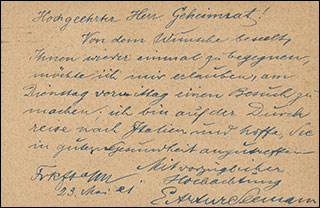 Hochgeehrter Herr Geheimrat!
Von dem Wunsche beseelt,
Ihnen wieder einmal zu begegnen,
möchte ich mir erlauben, am
Dienstag vormittag einen Besuch zu
machen; ich bin auf der Durch
reise nach Italien und hoffe, Sie
in guter Gesundheit anzutreffen
Mit vorzüglicher
Hochachtung
23. Mai 21